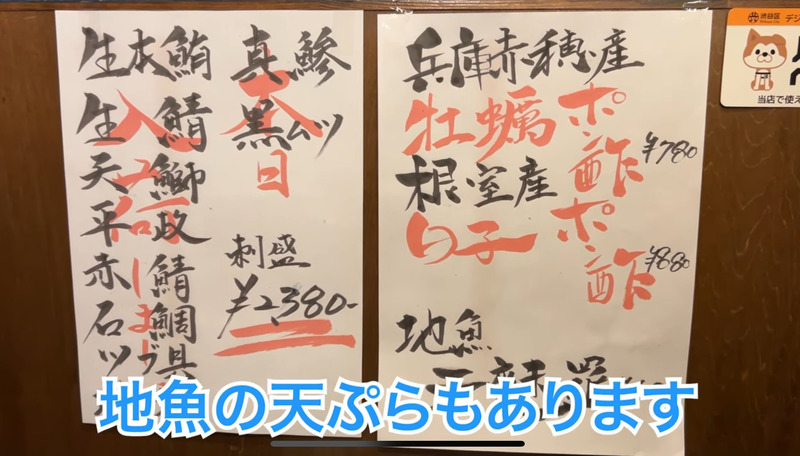 生本鮪
生鯖
天鰤
平政
赤鯖
石鯛
ツブ貝
真鯵
黒ムツ
本日
刺盛
¥2,380-
兵庫赤穂産
牡蠣ポン酢 ¥780
根室産
白子ポン酢 ¥880
地魚
渋谷区
デジ
当店で使え
地魚の天ぷらもあります